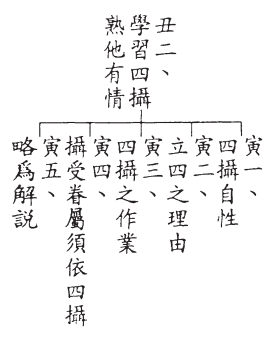 丑二、
學習四攝
熟他有情
寅一、
四攝自性
寅二、
立四之理由
寅三、
四攝之作業
寅四、
攝受眷屬須依四攝
寅五、
略爲解説